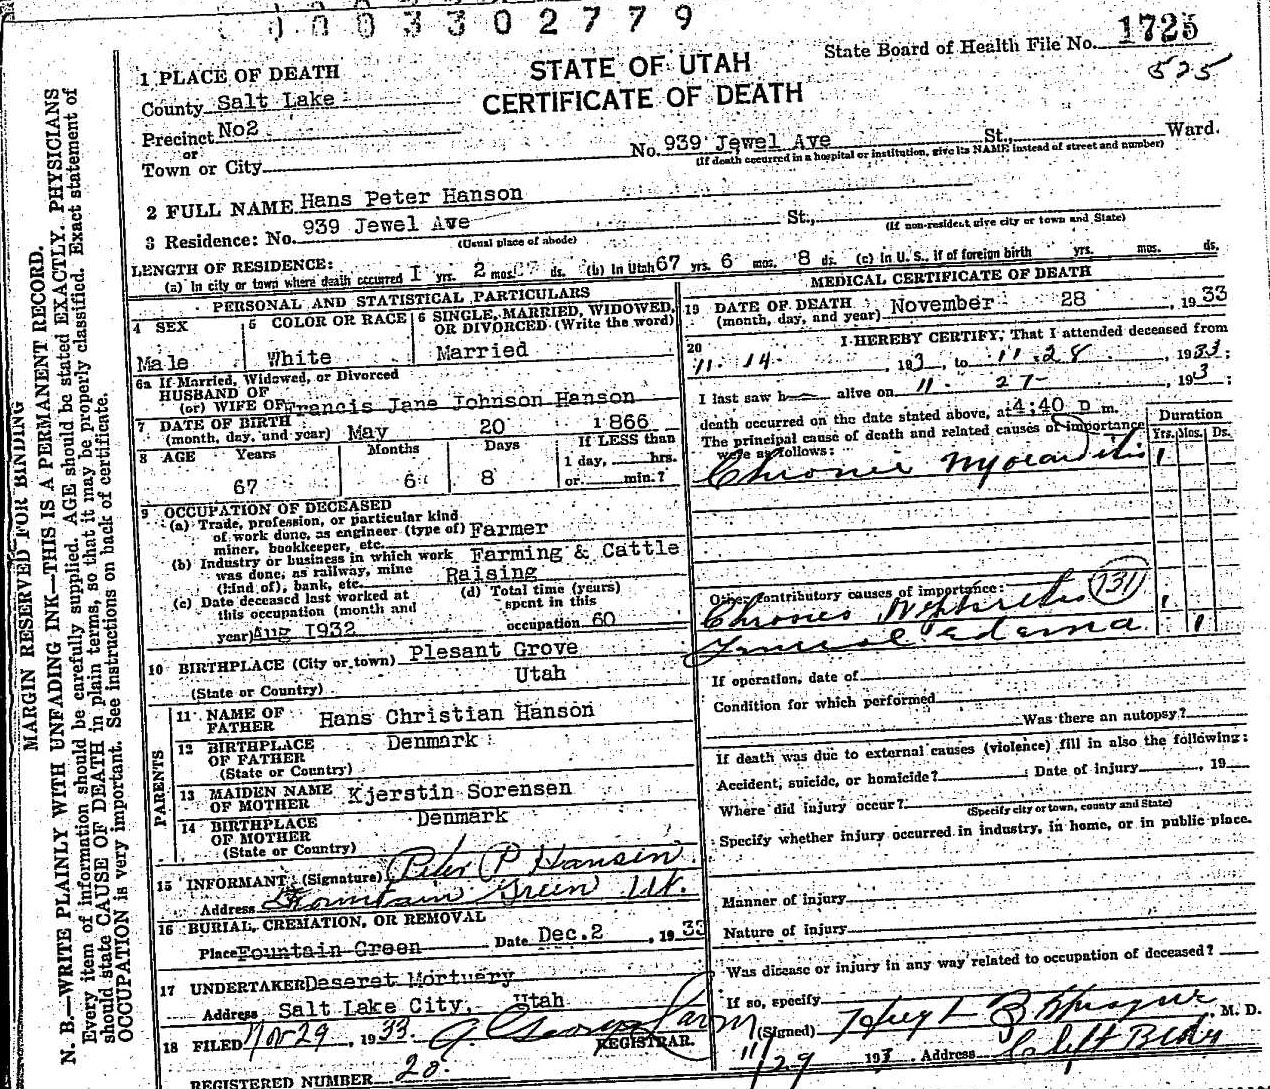 0003302779
State Board of Health File No. 1725
525
STATE OF UTAH
CERTIFICATE OF DEATH
1 PLACE OF DEATH
County Salt Lake
Precinct No2
or
Town or City
No. 939 Jewel Ave St., Ward.
(If death occurred in a hospital or institution, give its NAME instead of street and number)
2 FULL NAME Hans Peter Hanson
3 Residence: No. 939 Jewel Ave St.,
(Usual place of abode) (If non-resident give city or town and State)
LENGTH OF RESIDENCE:
(a) In city or town where death occurred 1 yrs. 2 mos. ds. (b) In Utah 67 yrs. 6 mos. 8 ds. (c) In U. S., if of foreign birth yrs. mos. ds.
PERSONAL AND STATISTICAL PARTICULARS
4 SEX
Male
5 COLOR OR RACE
White
6 SINGLE, MARRIED, WIDOWED,
OR DIVORCED (Write the word)
Married
6a If Married, Widowed, or Divorced
HUSBAND OF
(or) WIFE OF Francis Jane Johnson Hanson
7 DATE OF BIRTH
(month, day, and year) May 20 1866
8 AGE Years Months Days If LESS than
1 day, hrs.
67 6 8 or min.?
9 OCCUPATION OF DECEASED
(a) Trade, profession, or particular kind
of work done, as engineer (type of) Farmer
miner, bookkeeper, etc.
(b) Industry or business in which work Farming & Cattle
was done, as railway, mine
(kind of), bank, etc. Raising
(c) Date deceased last worked at
this occupation (month and
year) Aug 1932
(d) Total time (years)
spent in this
occupation 60
10 BIRTHPLACE (City or town) Plesant Grove
(State or Country) Utah
PARENTS
11 NAME OF
FATHER Hans Christian Hanson
12 BIRTHPLACE
OF FATHER Denmark
(State or Country)
13 MAIDEN NAME
OF MOTHER Kjerstin Sorensen
14 BIRTHPLACE
OF MOTHER Denmark
(State or Country)
15 INFORMANT (Signature) Peter P Hansen
Address Fountain Green Ut.
16 BURIAL, CREMATION, OR REMOVAL
Place Fountain Green Date Dec. 2, 1933
17 UNDERTAKER Deseret Mortuary
Address Salt Lake City, Utah
18 FILED Nov 29, 1933
REGISTRAR.
REGISTERED NUMBER 20
MEDICAL CERTIFICATE OF DEATH
19 DATE OF DEATH
(month, day, and year) November 28, 1933
20 I HEREBY CERTIFY, That I attended deceased from
11-14, 193, to 11-28, 1933;
I last saw h alive on 11-27-, 193;
death occurred on the date stated above, at 4:40 P m.
The principal cause of death and related causes of importance
were as follows:
Duration
Yrs. Mos. Ds.
Chronic Myocarditis 1
Other contributory causes of importance: 131
Chronic Nephritis 1
edema 1
If operation, date of
Condition for which performed
Was there an autopsy?
If death was due to external causes (violence) fill in also the following:
Accident, suicide, or homicide? Date of injury, 19
Where did injury occur?
(Specify city or town, county and State)
Specify whether injury occurred in industry, in home, or in public place.
Manner of injury
Nature of injury
Was disease or injury in any way related to occupation of deceased?
If so, specify
(Signed) Hugh B Sprague, M. D.
11/29 193 Address Clift Bldg
MARGIN RESERVED FOR BINDING
N. B.—WRITE PLAINLY WITH UNFADING INK—THIS IS A PERMANENT RECORD.
Every item of information should be carefully supplied. AGE should be stated EXACTLY. PHYSICIANS
should state CAUSE OF DEATH in plain terms, so that it may be properly classified. Exact statement of
OCCUPATION is very important. See instructions on back of certificate.